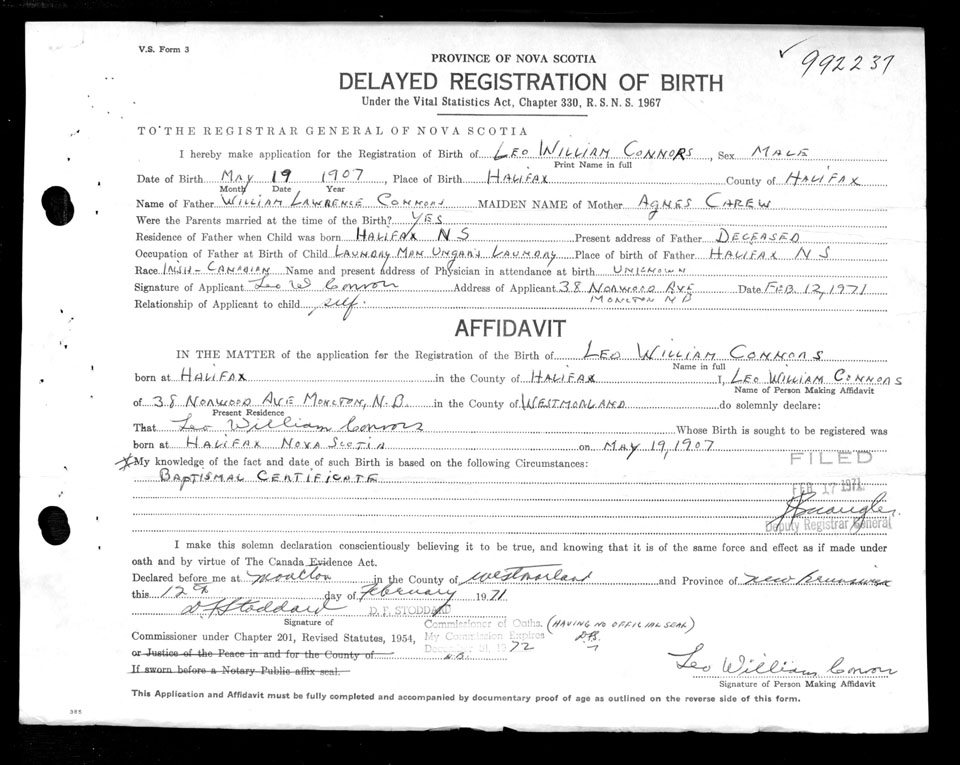 V.S. Form 3
✓ 992237
PROVINCE OF NOVA SCOTIA
DELAYED REGISTRATION OF BIRTH
Under the Vital Statistics Act, Chapter 330, R.S.N.S. 1967
TO THE REGISTRAR GENERAL OF NOVA SCOTIA
I hereby make application for the Registration of Birth of LEO WILLIAM CONNORS, Sex MALE
Print Name in full
Date of Birth MAY 19 1907, Place of Birth HALIFAX County of HALIFAX
Month Date Year
Name of Father WILLIAM LAWRENCE CONNORS MAIDEN NAME of Mother AGNES CAREW
Were the Parents married at the time of the Birth? YES
Residence of Father when Child was born HALIFAX NS Present address of Father DECEASED
Occupation of Father at Birth of Child LAUNDRY MAN UNGARS LAUNDRY Place of birth of Father HALIFAX NS
Race IRISH-CANADIAN Name and present address of Physician in attendance at birth UNKNOWN
Signature of Applicant Leo W Connors Address of Applicant 38 NORWOOD AVE Date FEB. 12, 1971
MONCTON NB
Relationship of Applicant to child self.
AFFIDAVIT
IN THE MATTER of the application for the Registration of the Birth of LEO WILLIAM CONNORS
Name in full
born at HALIFAX in the County of HALIFAX I, LEO WILLIAM CONNORS
Name of Person Making Affidavit
of 38 NORWOOD AVE MONCTON, N.B. in the County of WESTMORLAND do solemnly declare:
Present Residence
That Leo William Connors Whose Birth is sought to be registered was
born at HALIFAX NOVA SCOTIA on MAY 19, 1907
My knowledge of the fact and date of such Birth is based on the following Circumstances:
FILED
BAPTISMAL CERTIFICATE
FEB 17 1971
Deputy Registrar General
I make this solemn declaration conscientiously believing it to be true, and knowing that it is of the same force and effect as if made under
oath and by virtue of The Canada Evidence Act.
Declared before me at Moncton in the County of Westmorland and Province of New Brunswick
this 12th day of February 1971
D F Stoddard D. F. STODDARD
Signature of Commissioner of Oaths. (HAVING NO OFFICIAL SEAL)
Commissioner under Chapter 201, Revised Statutes, 1954, My Commission Expires
December 31, 1972
or Justice of the Peace in and for the County of N.B.
If sworn before a Notary Public affix seal.
Leo William Connors
Signature of Person Making Affidavit
This Application and Affidavit must be fully completed and accompanied by documentary proof of age as outlined on the reverse side of this form.